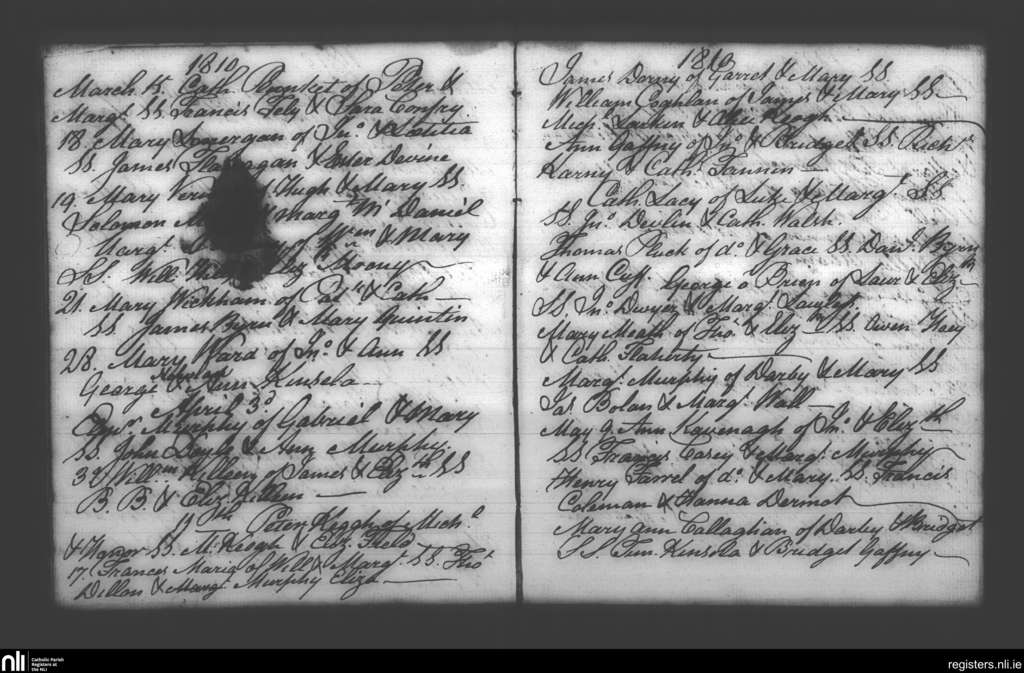 1810
March 15. Cath. Plunket of Peter &
Margt. SS. Francis Fely & Sara Confry
18. Mary Lonergan of Jno. & Letitia
SS. James Flanagan & Ester Devine
19. Mary Hugh & Mary SS.
Solomon Margt. Mc Daniel
Margt. of Wm. & Mary
SS. Will. Eliz. Mooney
21. Mary Wickham of Patk. & Cath.
SS. James Byrn & Mary Quintin
28. Mary Ward of Jno. & Ann SS
George & Ann Kinsela
April 3d
Edwd. Murphy of Gabriel & Mary
SS. John Doyle & Ann Murphy
3d Willm. Killeen of James & Elizth. SS
B. B. & Eliz. Killeen
Peter Keogh of Michl.
& Honor SS. M. Keogh & Eliz. Field
17. Frances Maria of Will & Margt. SS. Thos.
Dillon & Margt. Murphy Eliza
1810
James Dorny of Garret & Mary SS.
William Coghlan of James & Mary SS.
Michl. Larkin & Keogh
Ann Gaffny of Jno. & Bridget SS. Richd.
Karny & Cath. Fannin
Cath. Lacy of Luke & Margt. SS
SS. Jno. Devlin & Cath. Walsh.
Thomas Pluck of do. & Grace SS. David Byrn
& Ann Cuff. George o Brien of Lawr. & Elizth.
SS. Jno. Dwyer & Margt. Lawler.
Mary Meath of Thos. & Elizth. SS. Owen
& Cath. Flaherty
Margt. Murphy of Darby & Mary SS
Jas. Bolan & Margt. Wall
May 9. Ann Kavenagh of Jno. & Elizth.
SS. Francis Casey & Margt. Murphy
Henry Farrel of do. & Mary. SS. Francis
Coleman & Hanna Dermot
Mary Ann Callaghan of Darby & Bridget
SS. Kinsela & Bridget Gaffny
nli
Catholic Parish
Registers at
the NLI
registers.nli.ie